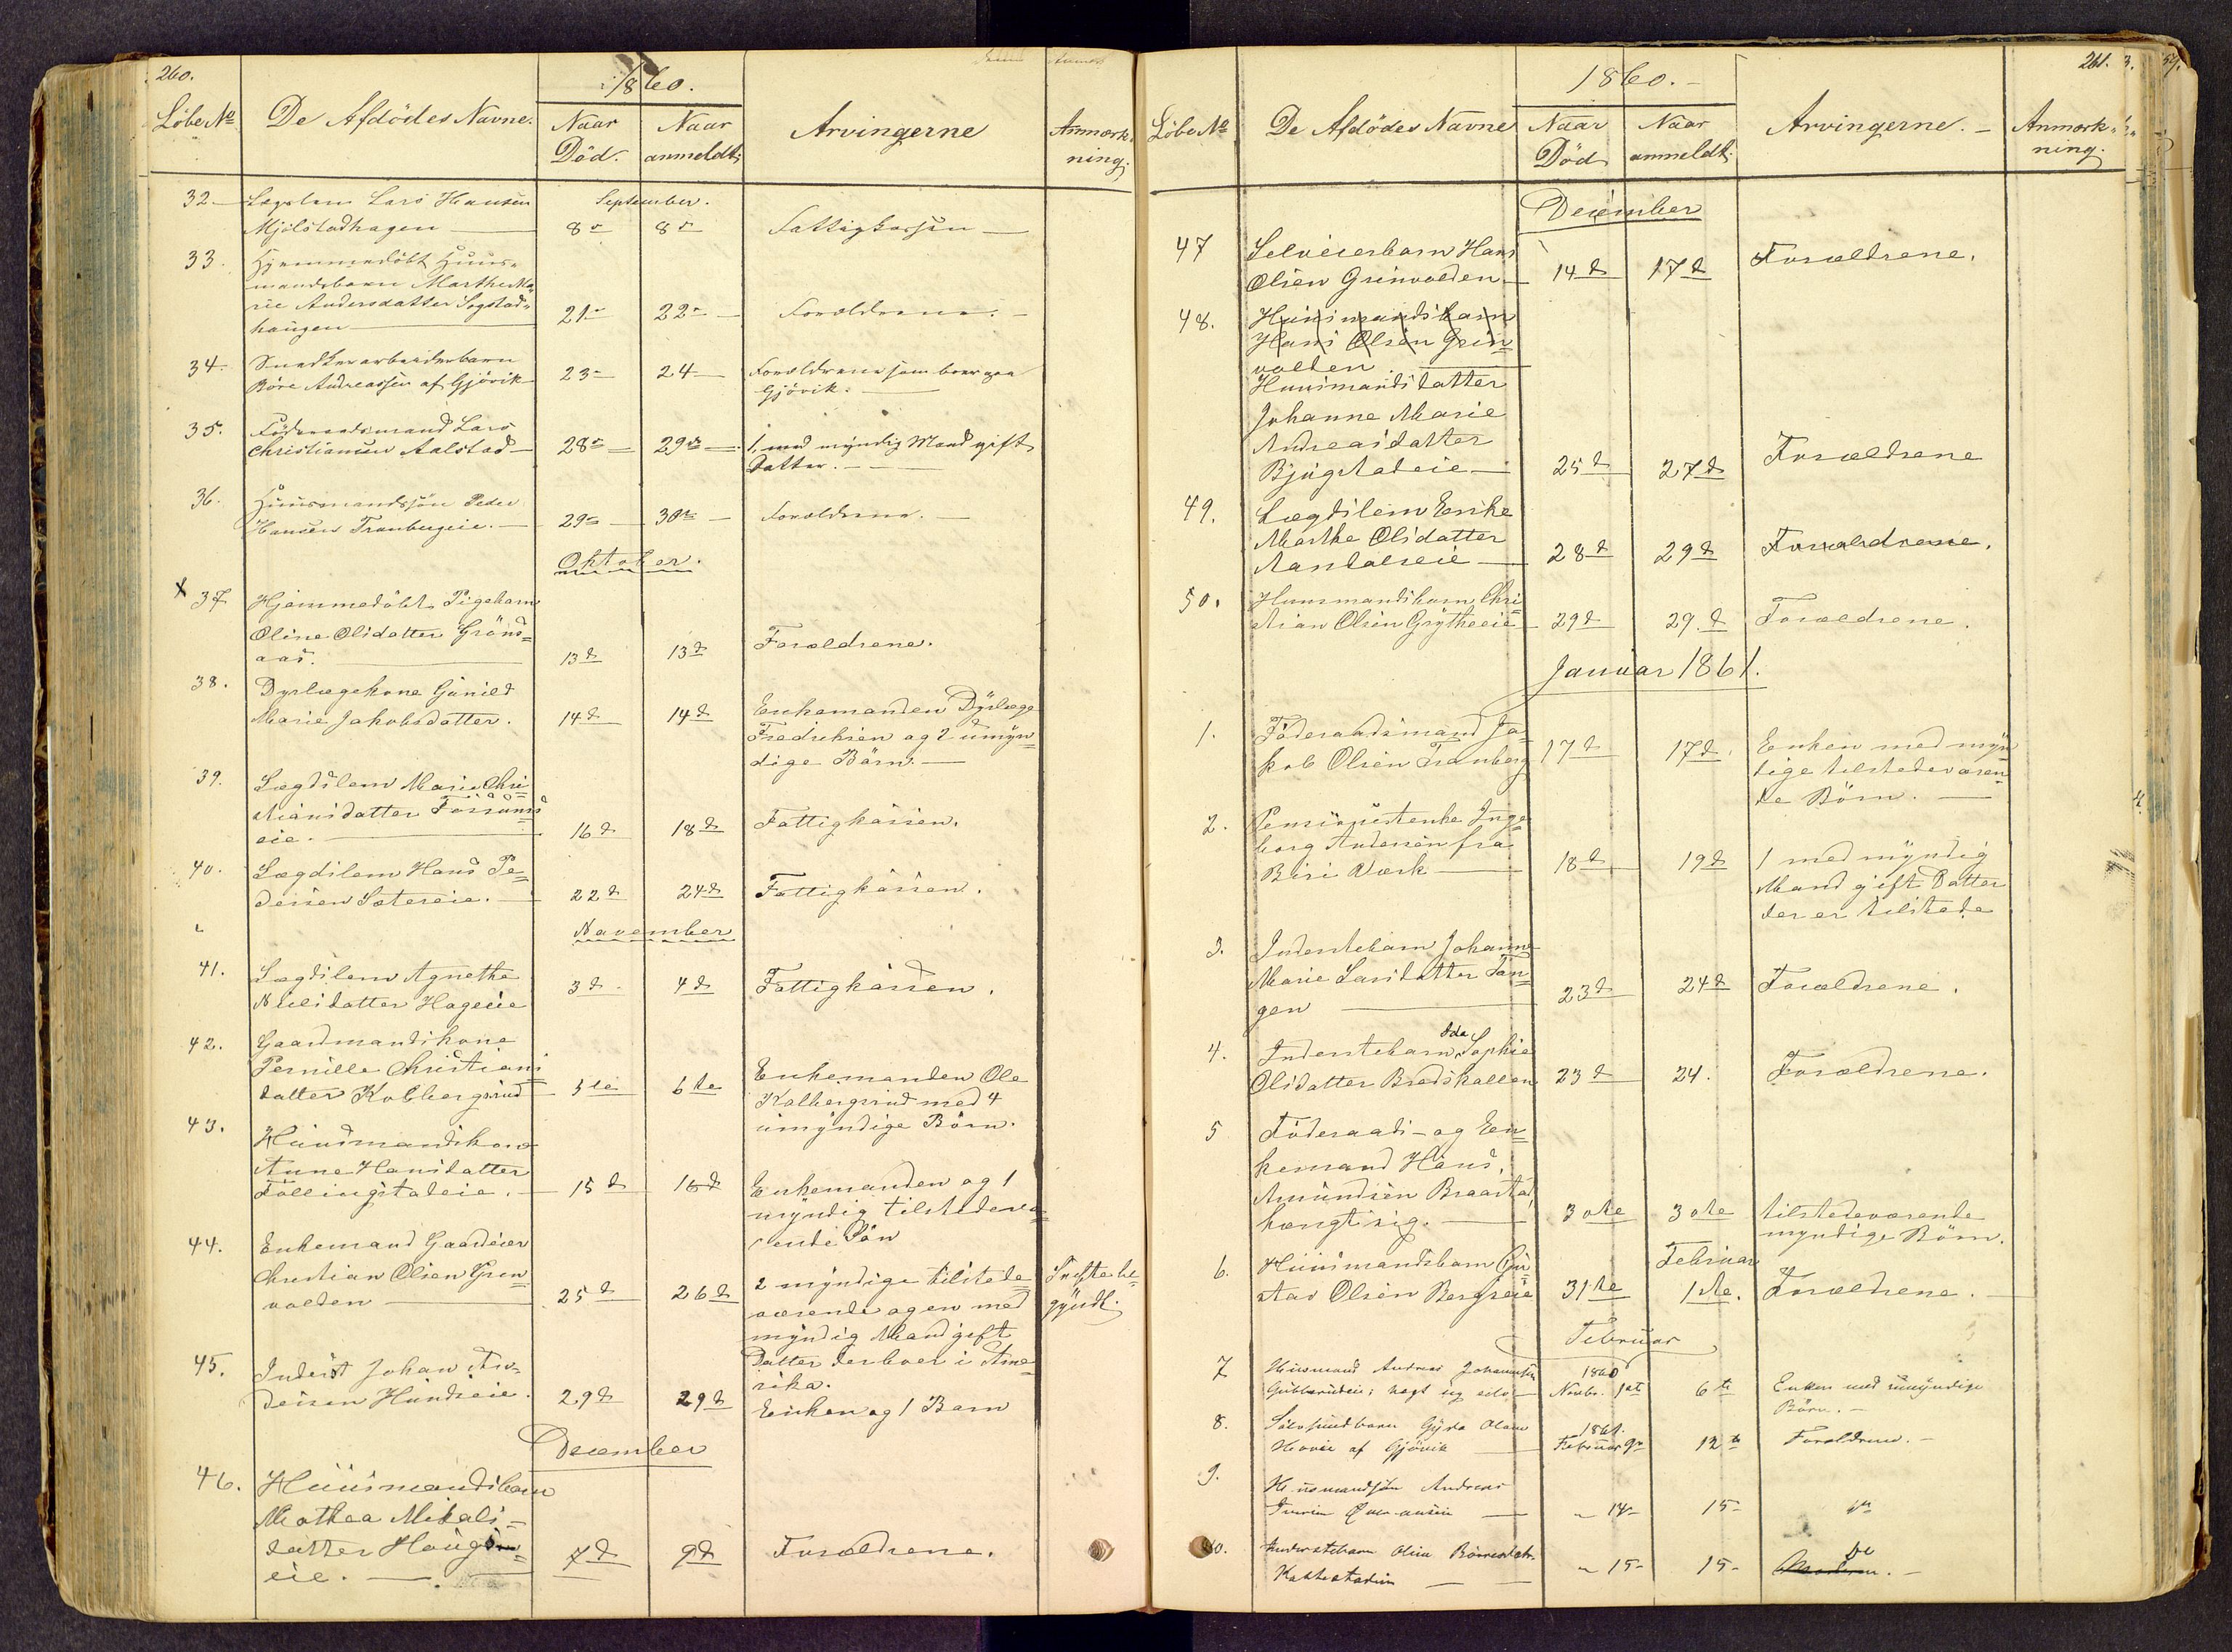 260.
1860.
Löbe No De Afdödes Navne. Naar Död. Naar anmeldt; Arvingerne Anmærkning.
September.
32. Lægslem Lars Hansen
Mjölstadhagen 8de 8de Fattigkassen
33. Hjemmedöbt Huus-
mandsbarn Marthe Ma-
rie Andersdatter Sogstad-
haugen 21- 22- Forældrene.
34. Snedkerarbeiderbarn
Böre Andreassen af Gjövik 23- 24 Forældrene som boer paa
Gjövik.
35. Föderaadsmand Lars
Christiansen Aalstad 28- 29de 1, med myndig Mand gift
Datter.
36. Huusmandssön Peder
Hansen Tranbergeie. 29- 30- Forældrene.
Oktober.
x 37 Hjemmedöbt Pigebarn
Oline Olsdatter Gröns=
aas. 13d 13d Forældrene.
38. Dyrlægekone Gunild
Marie Jakobsdatter. 14d 14d Enkemanden Dyrlæge
Fredriksen og 2 umyn=
dige Börn.
39. Lægdslem Marie Chri=
stiansdatter
eie. 16d 18d Fattigkassen.
40. Lægdslem Hans Pe=
dersen Sætereie. 22d 24d Fattigkassen.
November
41. Lægdslem Agnethe
Nilsdatter Hageeie 3d 4d Fattigkassen.
42. Gaardmandskone
Pernille Christians=
datter Kolbergsrud 5te 6te Enkemanden Ole
Kolbergsrud med 4
umyndige Börn.
43. Huusmandskone
Anne Hansdatter
Föllingstadeie. 15d 16d Enkemanden og 1
myndig tilstedevæ=
rende Sön
44. Enkemand Gaardeier
Christian Olsen Gren=
volden 25d 26d 2 myndige tilstede=
værende og en med
myndig Mand gift
Datter der boer i Ame=
rika.
Skifte be=
gyndt.
45. Inderst Johan An=
dersen Hundseie. 29d 29d Enken og 1 Barn
December
46. Huusmandsbarn
Mathea Mikels=
datter Haugs=
eie. 7d 9d Forældrene.
261.
1860.
Löbe No De Afdödes Navne Naar Död Naar anmeldt; Arvingerne. Anmærkning.
December
47 Selveierbarn Hans
Olsen Grinvolden 14d 17d Forældrene.
48. Huusmandsbarn
Hans Olsen Grin=
volden.
Huusmandsdatter
Johanne Marie
Andreasdatter
Bjugstadeie 25d 27d Forældrene
49. Lægdslem Enke
Marthe Olsdatter
Aandalseie 28d 29d Forældrene.
50. Huusmandsbarn Chri=
stian Olsen Grytheeie 29d 29.d Forældrene.
Januar 1861.
1. Föderaadsmand Ja=
kob Olsen Tranberg 17d 17d. Enken med myn=
dige tilstedeværen=
de Börn.
2. Pensionistenke Inge=
borg Andersen fra
Biri Værk 18d 19d 1 med myndig
Mand gift Datter
der er tilstede
3. Inderstebarn Johanne
Marie Larsdatter Tan=
gen 23d 24d Forældrene.
4. Inderstebarn Ida Sophie
Olsdatter Bredskallen 23d 24. Forældrene.
5 Föderaads- og En=
kemand Hans
Amundsen Braastad
hængt sig. 30te 30te tilstedeværende
myndige Börn.
Februar
6. Huusmandsbarn Gu=
stav Olsen Bergseie 31te 1ste. Forældrene.
Februar
7 Husmand Andreas Johannesen 1860
Gubberudeie; hægt sig selv Novbr. 1st 6te Enken med umyndige
Börn.
8. Gyda Olava
af Gjövik 1861. Februar 9de 12te Forældrene.
9. Husmandssön Andreas
" 14- 15-
10. Inderstebarn Oline Börresdatr.
" 15- 15-